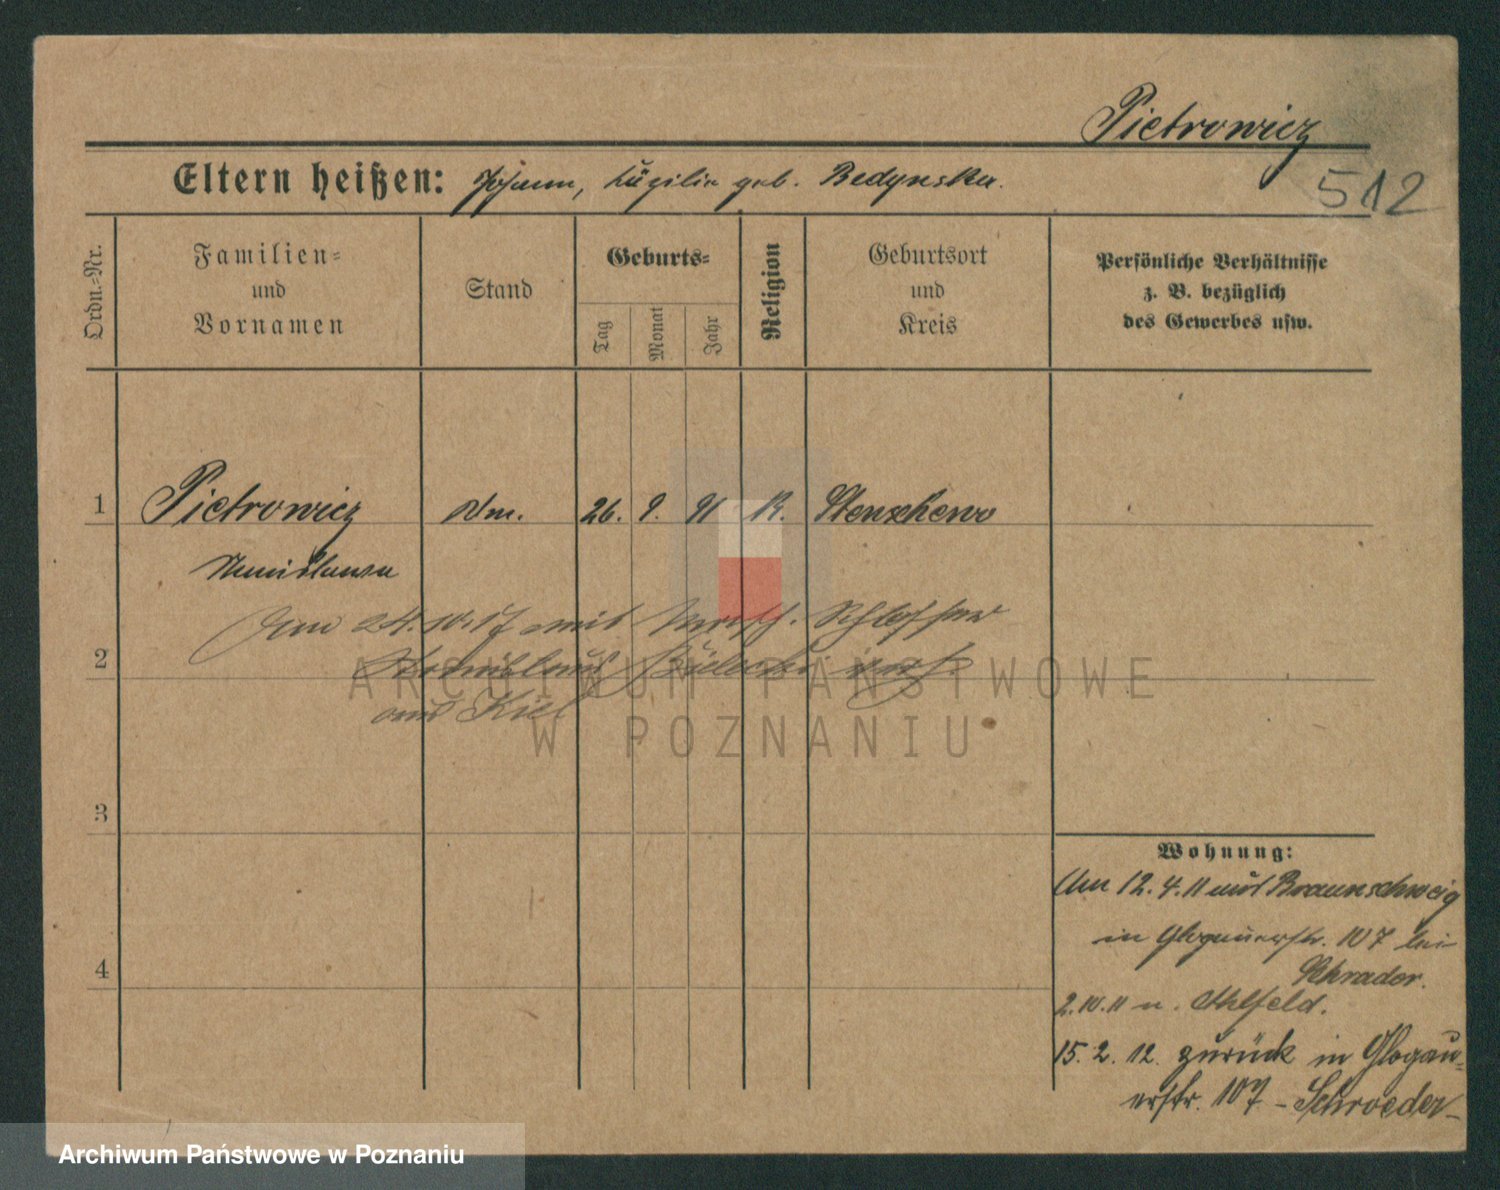 Pietrowicz
512
Eltern heißen: Johann, Cäzilie geb. Bedynska.
Ordn.-Nr.
Familien-
und
Vornamen
Stand
Geburts-
Tag
Monat
Jahr
Religion
Geburtsort
und
Kreis
Persönliche Verhältnisse
z. B. bezüglich
des Gewerbes usw.
1 Pietrowicz 26. 9. 91 K. Stenschewo
Am 24.10.17 mit Schlosser
2 Stanislaus verh.
aus Kiel
ARCHIWUM PAŃSTWOWE
W POZNANIU
3
Wohnung:
Am 12.4.11 aus Braunschweig
in Glogauerstr. 107 bei
Schrader.
4
2.10.11 n. Ahlfeld.
15.2.12. zurück in Glogau-
erstr. 107 - Schroeder -
Archiwum Państwowe w Poznaniu